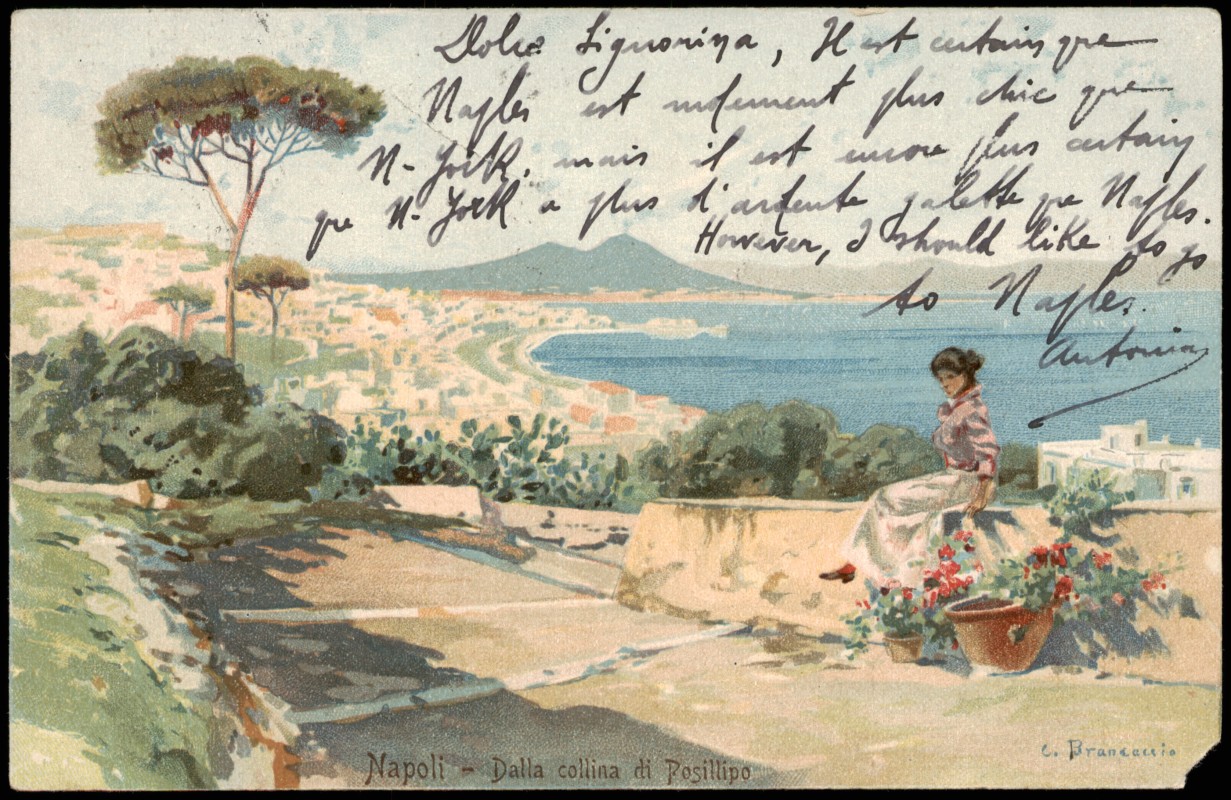 Dolce Signorina, Il est certain que
Naples est rudement plus chic que
N-York, mais il est encore plus certain
que N-York a plus d'ardente galette que Naples.
However, I should like to go
to Naples.
Antonia
C. Brancaccio
Napoli - Dalla collina di Posillipo